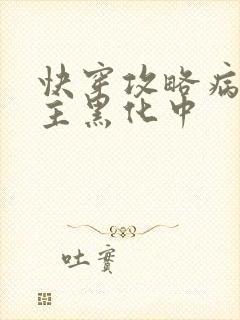 快穿攻略病
主黑化中
吐實